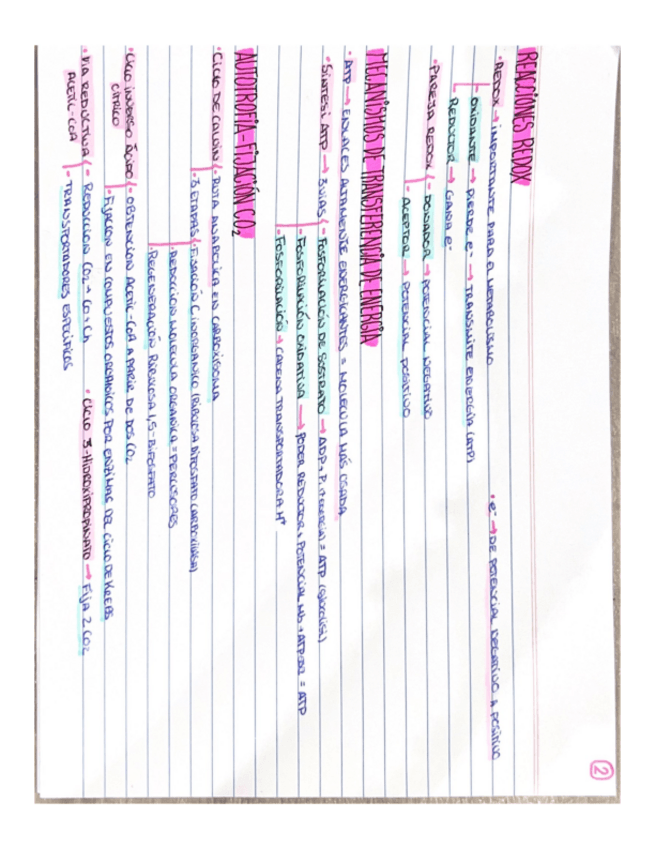 2
REACCIONES REDOX
· REDOX → IMPORTANTE PARA EL METABOLISMO
· e⁻ → DE POTENCIAL NEGATIVO A POSITIVO
- OXIDANTE → PIERDE e⁻ → TRANSMITE ENERGÍA (ATP)
- REDUCTOR → GANA e⁻
· PAREJA REDOX - DONADOR → POTENCIAL NEGATIVO
- ACEPTOR → POTENCIAL POSITIVO
MECANISMOS DE TRANSFERENCIA DE ENERGÍA
· ATP → ENLACES ALTAMENTE ENERGICANTES = MOLECULA MÁS USADA
· SÍNTESI ATP → 3 VIAS - FOSFORILACIÓN DE SUSTRATO → ADP + P (+energía) = ATP (glucolisi)
- FOSFORILACIÓN OXIDATIVA → PODER REDUCTOR + POTENCIAL Mb + ATPasa = ATP
- FOSFORILACIÓN → CADENA TRANSPORTADORA H⁺
AUTOTROFÍA - FIJACIÓN CO₂
· CICLO DE CALVIN - RUTA ANABOLICA EN CARBOXISOMA
- 3 ETAPAS - FIJACIÓN C INORGANICO (RIBULOSA BIFOSFATO CARBOXILASA)
- REDUCCIÓN MOLECULA ORGANICA = PERCUSORES
- REGENERACIÓN RIBULOSA 1,5-BIFOSFATO
· CICLO INVERSO ÁCIDO CÍTRICO - OBTENCION ACETIL-COA A PARTIR DE DOS CO₂
- FIJACION EN COMPUESTOS ORGANICOS POR ENZIMAS DEL CICLO DE KREBS
· VIA REDUCTIVA ACETIL-COA - REDUCCION CO₂ → CO + CH
- TRANSPORTADORES ESPECIFICOS
· CICLO 3-HIDROXIPROPIONATO → FIJA 2 CO₂